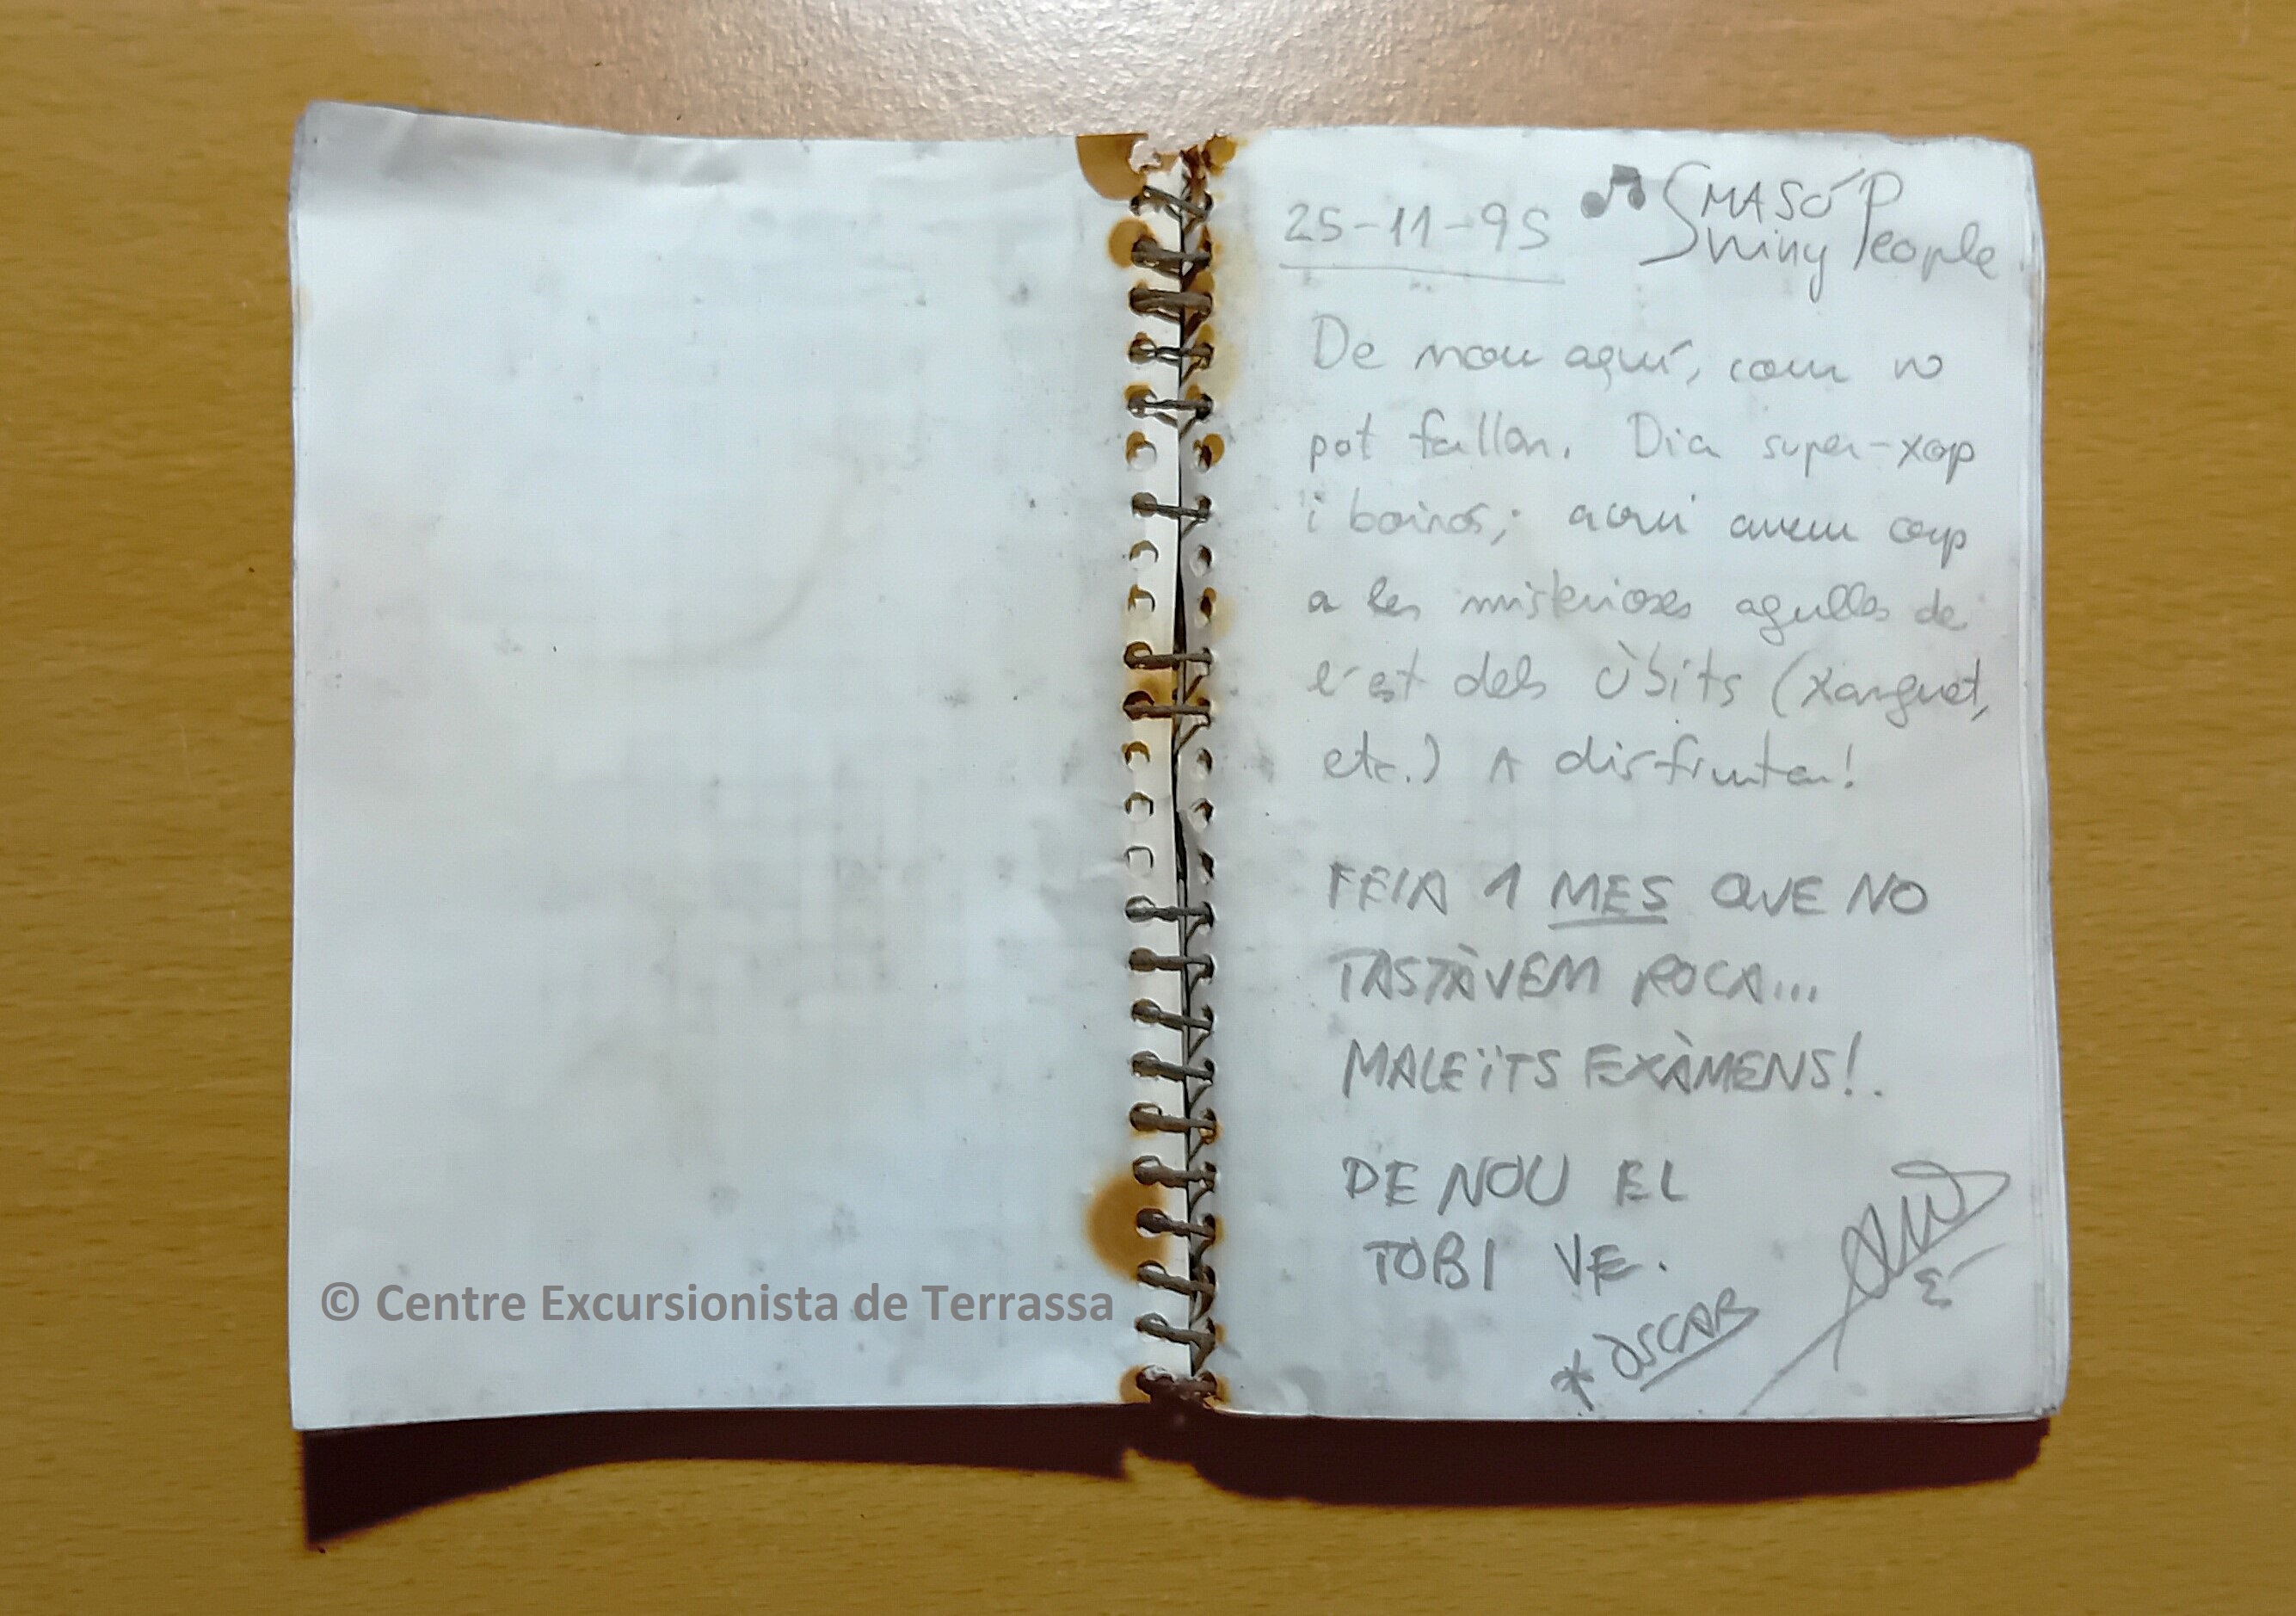 25-11-95
♫ SMASÓ People
Shiny
De nou aquí, com no
pot fallar. Dia super-xop
i boirós; avui anem cap
a les misterioses agulles de
l'est dels Òbits (Xanguet,
etc.) A disfrutar!
FEIA 1 MES QUE NO
TASTÀVEM ROCA...
MALEÏTS EXÀMENS!.
DE NOU EL
TOBI VE.
* ÒSCAR
© Centre Excursionista de Terrassa